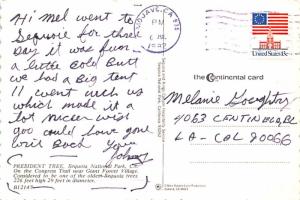 Hi Mel went to
Sequore for three
Day it was fun
a little Cold But
we has a Big tent
11 went such us
which made it a
lot nicer wish
you could have gone
writ Back your
Johnny
PRESIDENT TREE, Sequoia National Park, Ca.
On the Congress Trail near Giant Forest Village.
Considered to be one of the oldest Sequoia trees
226 feet high 29 feet in diameter.
PM
United States 13c
The Continental card
Melanie
4063 CENTINELA, BL
LA - CAL 90066